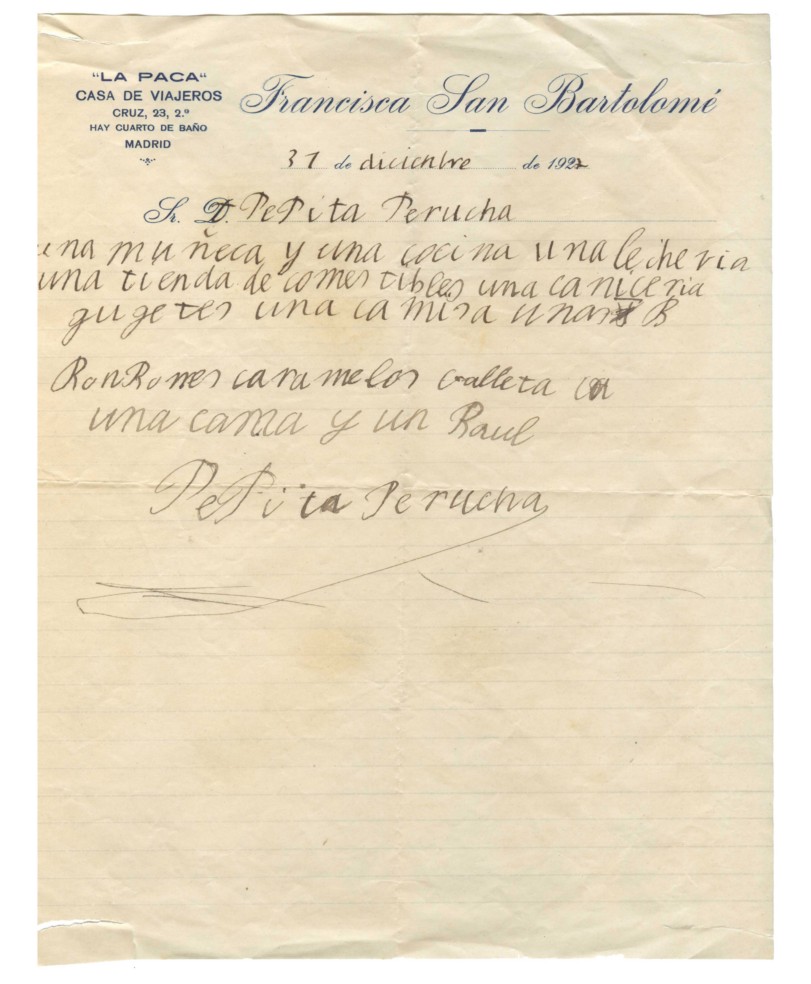 "LA PACA"
CASA DE VIAJEROS
CRUZ, 23, 2.º
HAY CUARTO DE BAÑO
MADRID
Francisca San Bartolomé
31 de diciembre de 1927
Sr. D. PePita Perucha
una muñeca y una cocina una lecheria
una tienda de comestibles una caniceria
gugetes una camisa unas
RonRones caramelos galleta
una cama y un Baul
PePita Perucha